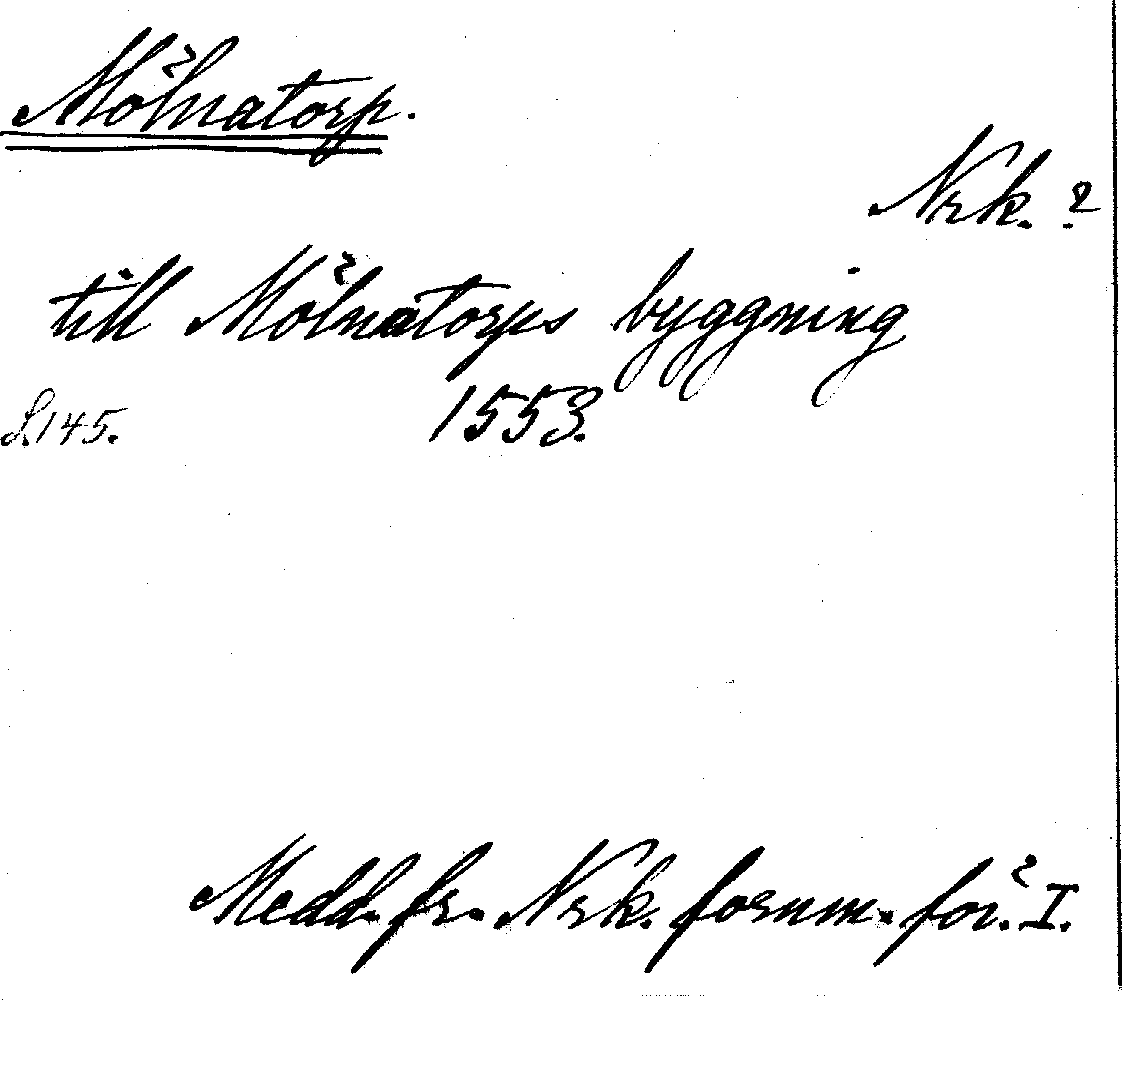 Mölnatorp.
Nrk. ?
till Mölnatorps byggning
S. 145. 1553.
Medd. fr. Nrk. fornm. för. I.